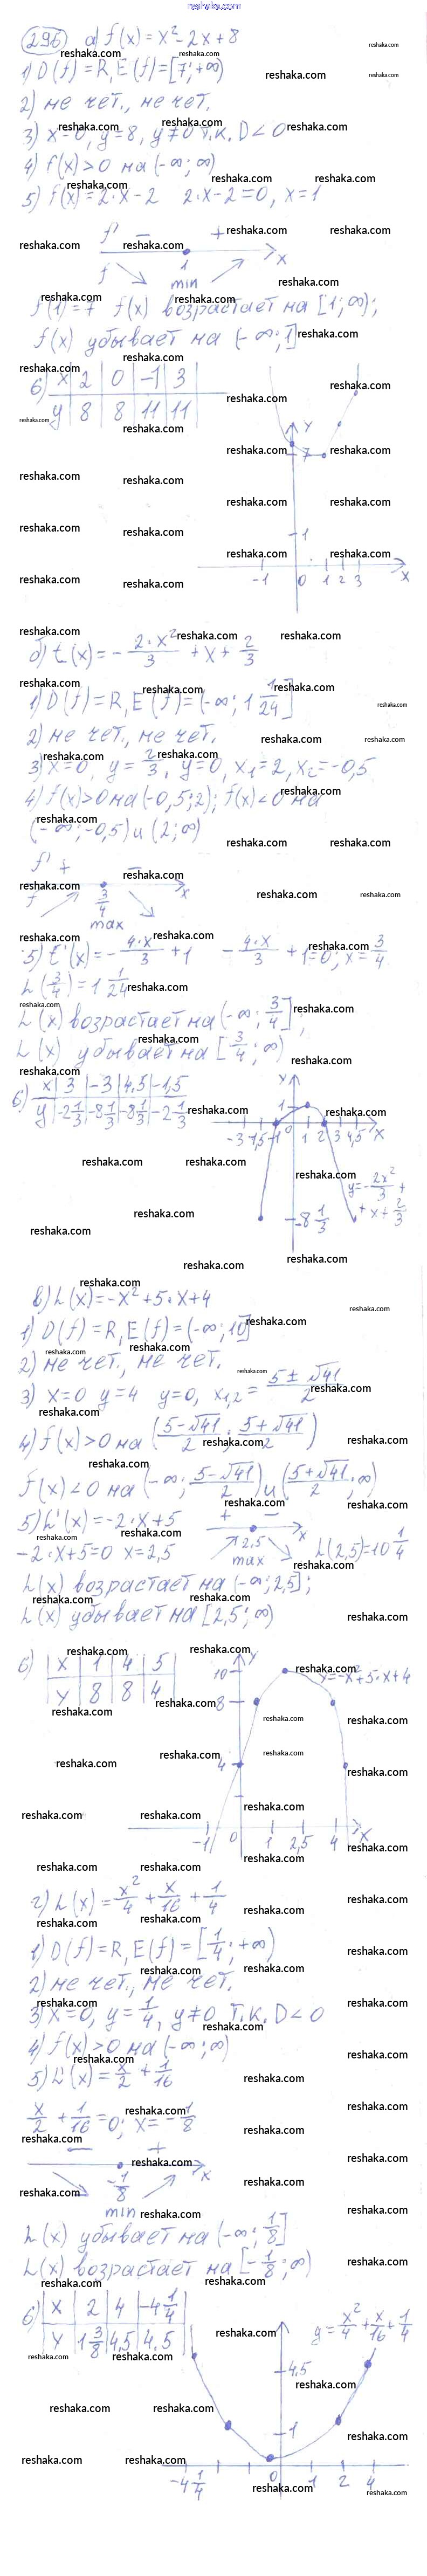 reshaka.com
296 а) f(x) = x² - 2x + 8
1) D(f) = R, E(f) = [7; +∞)
2) не чет., не чет.
3) x = 0, y = 8, y ≠ 0 т.к. D < 0
4) f(x) > 0 на (-∞; ∞)
5) f(x) = 2·x - 2 2·x - 2 = 0, x = 1
f' - + 
f 1 min x
f(1) = 7 f(x) возрастает на [1; ∞);
f(x) убывает на (-∞; 1]
6) x 2 0 -1 3
y 8 8 11 11
y
7
1
-1 0 1 2 3 x
б) t(x) = - 2·x²/3 + x + 2/3
1) D(f) = R, E(f) = (-∞; 1 1/24]
2) не чет., не чет.
3) x = 0, y = 2/3, y = 0, x₁ = 2, x₂ = -0,5
4) f(x) > 0 на (-0,5; 2); f(x) < 0 на
(-∞; -0,5) и (2; ∞)
f' + -
f 3/4 x
max
5) t'(x) = - 4·x/3 + 1 - 4·x/3 + 1 = 0; x = 3/4
h(3/4) = 1 1/24
h(x) возрастает на (-∞; 3/4];
h(x) убывает на [3/4; ∞)
6) x 3 -3 4,5 -1,5
y -2 1/3 -8 1/3 -8 1/3 -2 1/3
y
1
-3 -1,5 -1 0 1 2 3 4,5 x
y = - 2x²/3 +
+ x + 2/3
-8 1/3
в) h(x) = -x² + 5·x + 4
1) D(f) = R, E(f) = (-∞; 10]
2) не чет., не чет.
3) x = 0 y = 4 y = 0, x₁,₂ = 5 ± √41/2
4) f(x) > 0 на (5-√41/2; 5+√41/2)
f(x) < 0 на (-∞; 5-√41/2) и (5+√41/2; ∞)
5) h'(x) = -2·x + 5 + - x
-2·x + 5 = 0 x = 2,5 2,5 max h(2,5) = 10 1/4
h(x) возрастает на (-∞; 2,5];
h(x) убывает на [2,5; ∞)
6) x 1 4 5
y 8 8 4
y
10 y = -x² + 5·x + 4
8
4
-1 0 1 2,5 4 x
г) h(x) = x²/4 + x/16 + 1/4
1) D(f) = R, E(f) = [1/4; +∞)
2) не чет., не чет.
3) x = 0, y = 1/4, y ≠ 0 т.к. D < 0
4) f(x) > 0 на (-∞; ∞)
5) h'(x) = x/2 + 1/16
x/2 + 1/16 = 0; x = - 1/8
- +
-1/8 x
min
h(x) убывает на (-∞; 1/8]
h(x) возрастает на [-1/8; ∞)
6) x 2 4 -4 1/4
y 1 3/8 4,5 4,5
y = x²/4 + x/16 + 1/4
4,5
1
-4 1/4 0 1 2 4